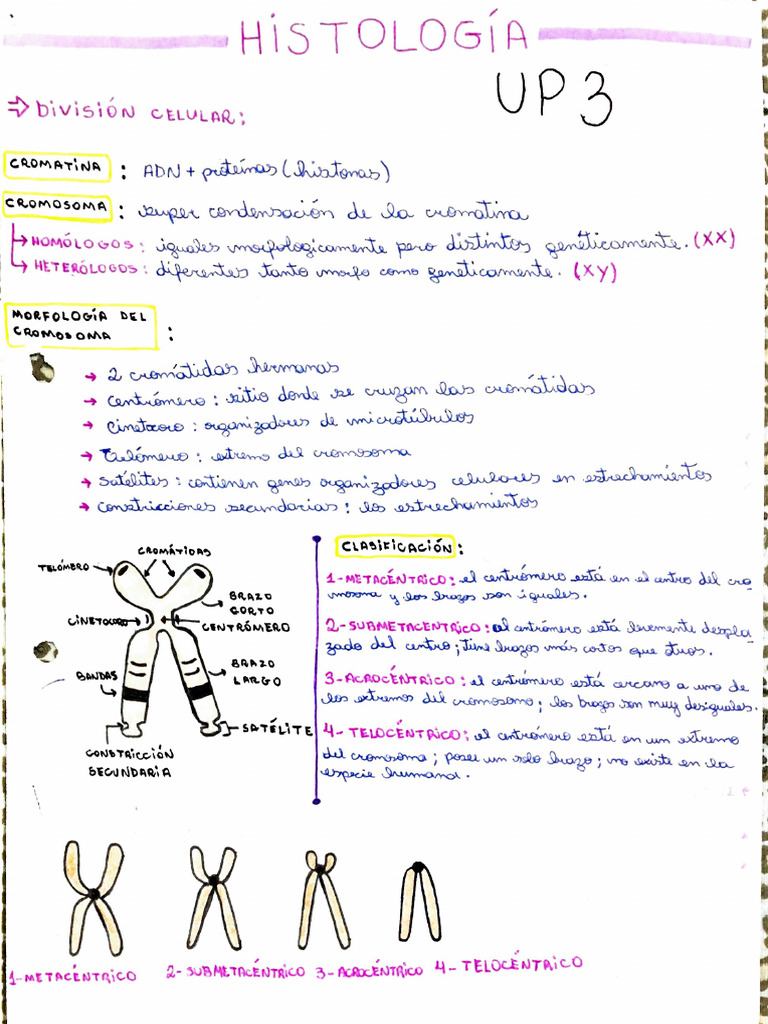 HISTOLOGÍA
UP3
⇒ DIVISIÓN CELULAR:
CROMATINA : ADN + proteínas (histonas)
CROMOSOMA : super condensación de la cromatina
HOMÓLOGOS: iguales morfologicamente pero distintos genéticamente. (XX)
HETERÓLOGOS: diferentes tanto morfo como geneticamente. (XY)
MORFOLOGÍA DEL
CROMOSOMA :
→ 2 cromátidas hermanas
→ centrómero: sitio donde se cruzan las cromátidas
→ cinetocoro: organizadores de microtúbulos
→ telómero: extremo del cromosoma
→ satélites: contienen genes organizadores celulares en estrechamientos
→ constricciones secundarias: los estrechamientos
CROMÁTIDAS
TELÓMERO
BRAZO
CORTO
CINETOCORO
CENTRÓMERO
BRAZO
LARGO
BANDAS
SATÉLITE
CONSTRICCIÓN
SECUNDARIA
CLASIFICACIÓN:
1-METACÉNTRICO: el centrómero está en el entro del cro
mosoma y los brazos son iguales.
2-SUBMETACENTRICO: el centrómero está levemente despla
zado del centro; tiene brazos más cortos que otros.
3-ACROCÉNTRICO: el centrómero está cercano a uno de
los extremos del cromosoma; los brazos son muy desiguales.
4-TELOCÉNTRICO: el centrómero está en un extremo
del cromosoma; posee un solo brazo; no existe en la
especie humana.
1-METACÉNTRICO
2-SUBMETACÉNTRICO
3-ACROCÉNTRICO
4-TELOCÉNTRICO